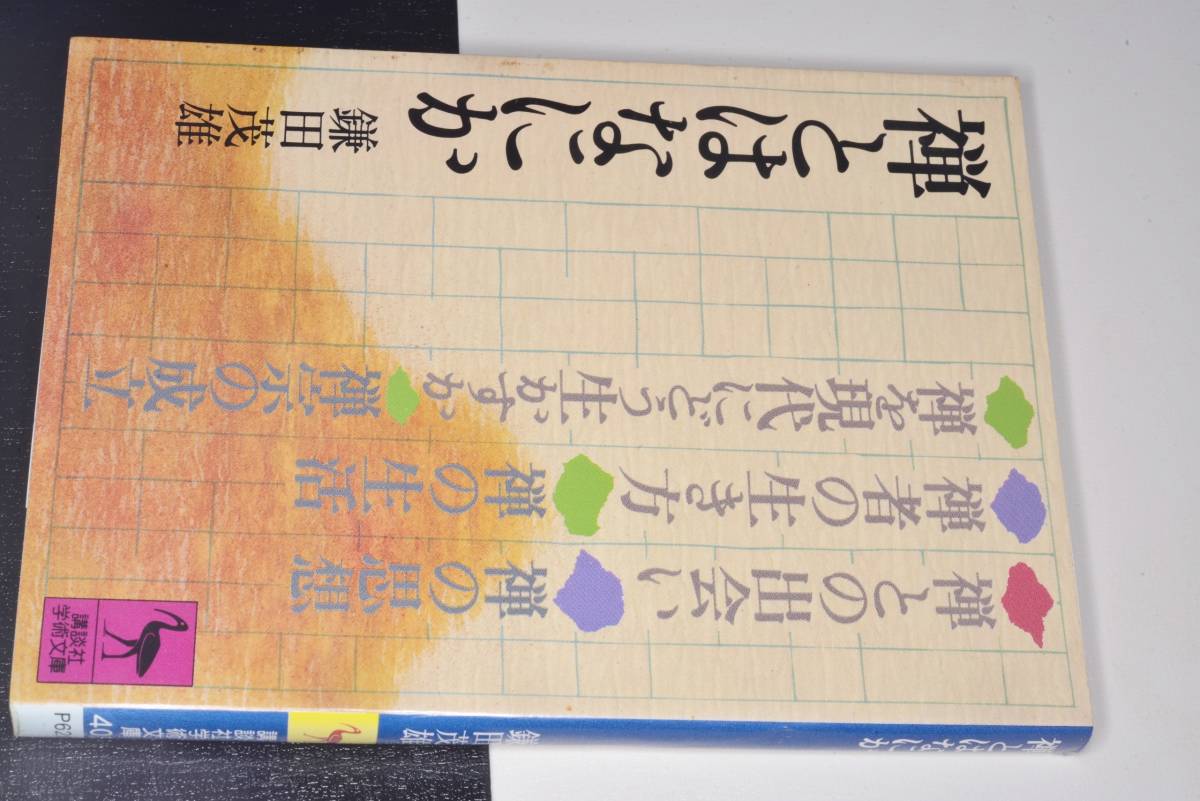 禅とはなにか
鎌田茂雄
禅との出会い
禅の思想
禅者の生き方
禅の生活
禅を現代にどう生かすか
禅宗の成立
講談社
学術文庫
禅とはなにか
鎌田茂雄
講談社学術文庫